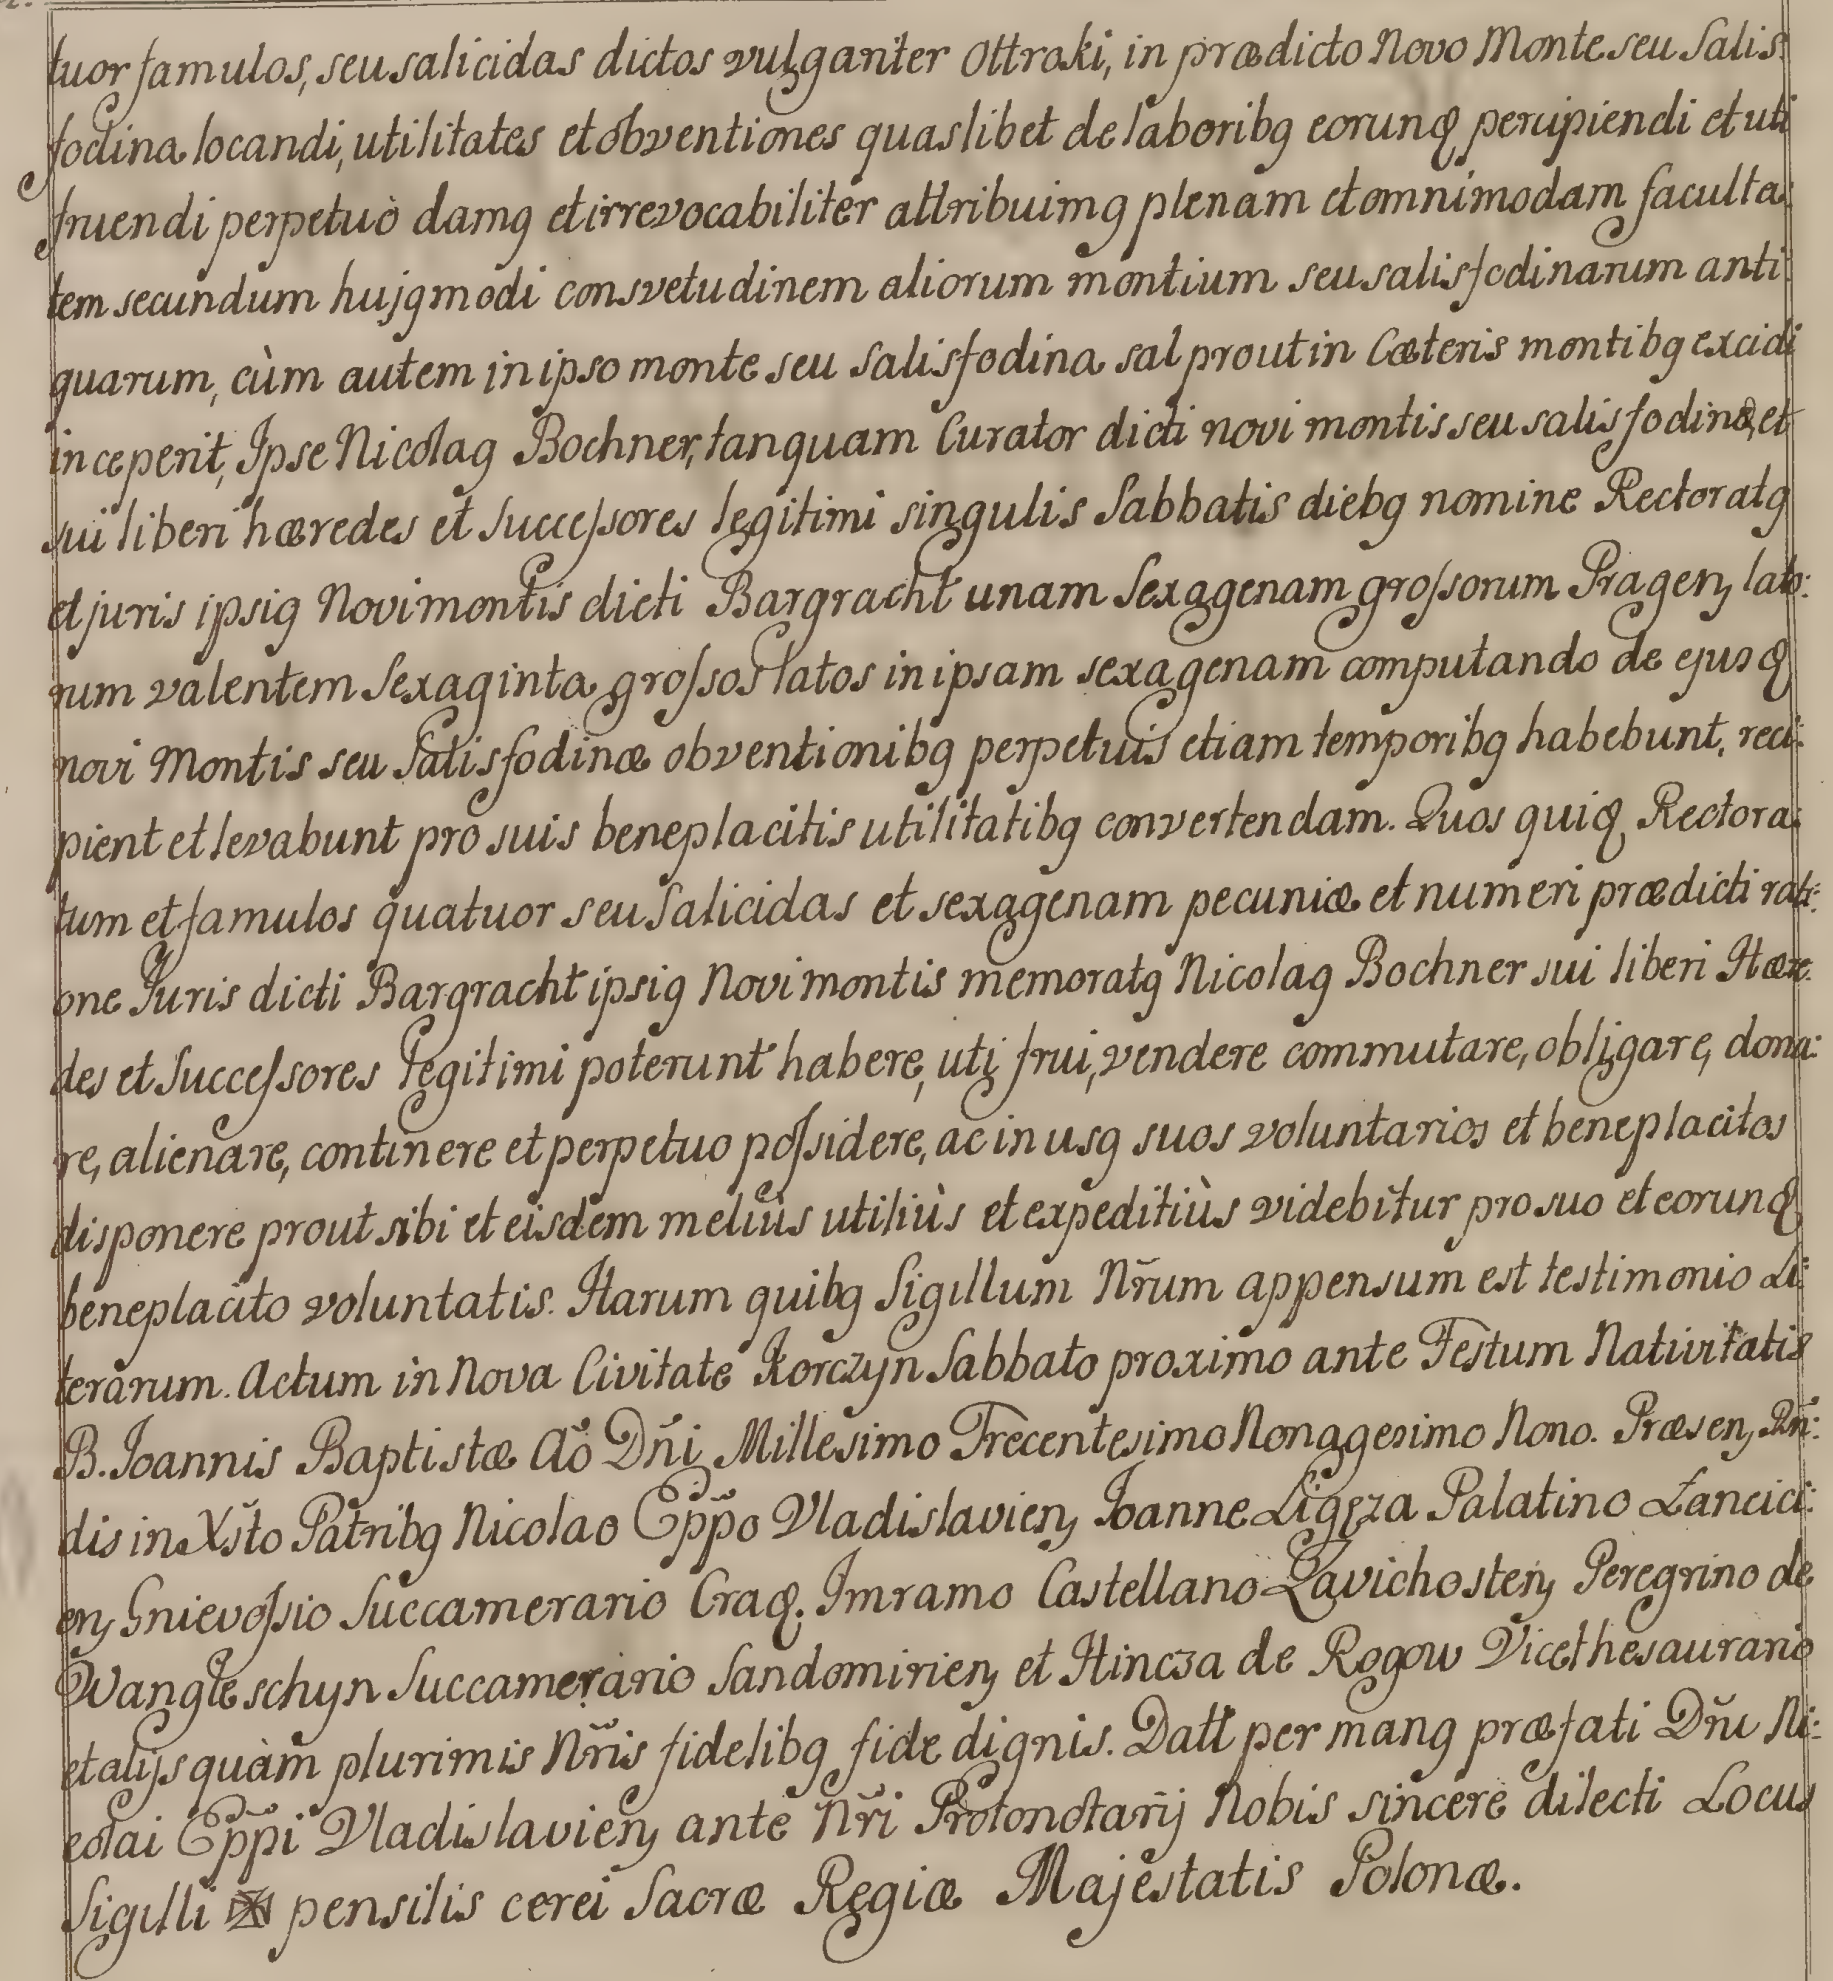 tuor famulos, seu salicidas dictos vulgariter Ottroki, in prædicto Novo Monte seu Salis:
fodina locandi, utilitates et obventiones quaslibet de laboribꝯ eorunꝗ percipiendi et uti
fruendi perpetuò damꝯ et irrevocabiliter attribuimꝯ plenam et omnimodam faculta:
tem secundum hujꝯmodi consvetudinem aliorum montium seu salisfodinarum anti:
quarum, cùm autem in ipso monte seu Salisfodina sal prout in Cæteris montibꝯ excidi
inceperit, Ipse Nicolaꝯ Bochner, tanquam Curator dicti novi montis seu salisfodinæ, et
sui liberi hæredes et Successores legitimi singulis Sabbatis diebꝯ nomine Rectoratꝯ
et juris ipsiꝯ Novi montis dicti Bargracht unam Sexagenam grossorum Pragen, lato:
rum valentem Sexaginta grossos latos in ipsam sexagenam computando de ejusꝗ
novi Montis seu Salisfodinæ obventionibꝯ perpetuis etiam temporibꝯ habebunt, reci:
pient et levabunt pro suis beneplacitis utilitatibꝯ convertendam. Quos quiꝗ Rectora:
tum et famulos quatuor seu Salicidas et sexagenam pecuniæ et numeri prædicti rati:
one Juris dicti Bargracht ipsiꝯ Novi montis memoratꝯ Nicolaꝯ Bochner sui liberi Hære:
des et Successores legitimi poterunt habere, uti frui, vendere commutare, obligare, dona:
re, alienare, continere et perpetuo possidere, ac in usꝯ suos voluntarios et beneplacitos
disponere prout sibi et eisdem meliùs utiliùs et expeditiùs videbitur pro suo et eorunꝗ
beneplacito voluntatis. Harum quibꝯ Sigillum Nr̃um appensum est testimonio Li:
terarum. Actum in Nova Civitate Korczyn Sabbato proximo ante Festum Nativitatis
B. Joannis Baptistæ Aõ Dñi Millesimo Trecentesimo Nonagesimo Nono. Præsen, Rñ:
dis in Xs̃to Patribꝯ Nicolao Epp̃o Vladislavien, Joanne Ligęza Palatino Lancici:
en, Gnievossio Succamerario Craꝗ. Imramo Castellano Zavichosten, Peregrino de
Wangleschyn Succamerario Sandomirien, et Hincza de Rogow Vicethesaurario
et alijs quàm plurimis Nr̃is fidelibꝯ fide dignis. Datt per manꝯ præfati Dñi Ni:
colai Epp̃i Vladislavien, ante Nr̃i Protonotarij Nobis sincere dilecti Locus
Sigilli pensilis cerei Sacræ Regiæ Majestatis Polonæ.